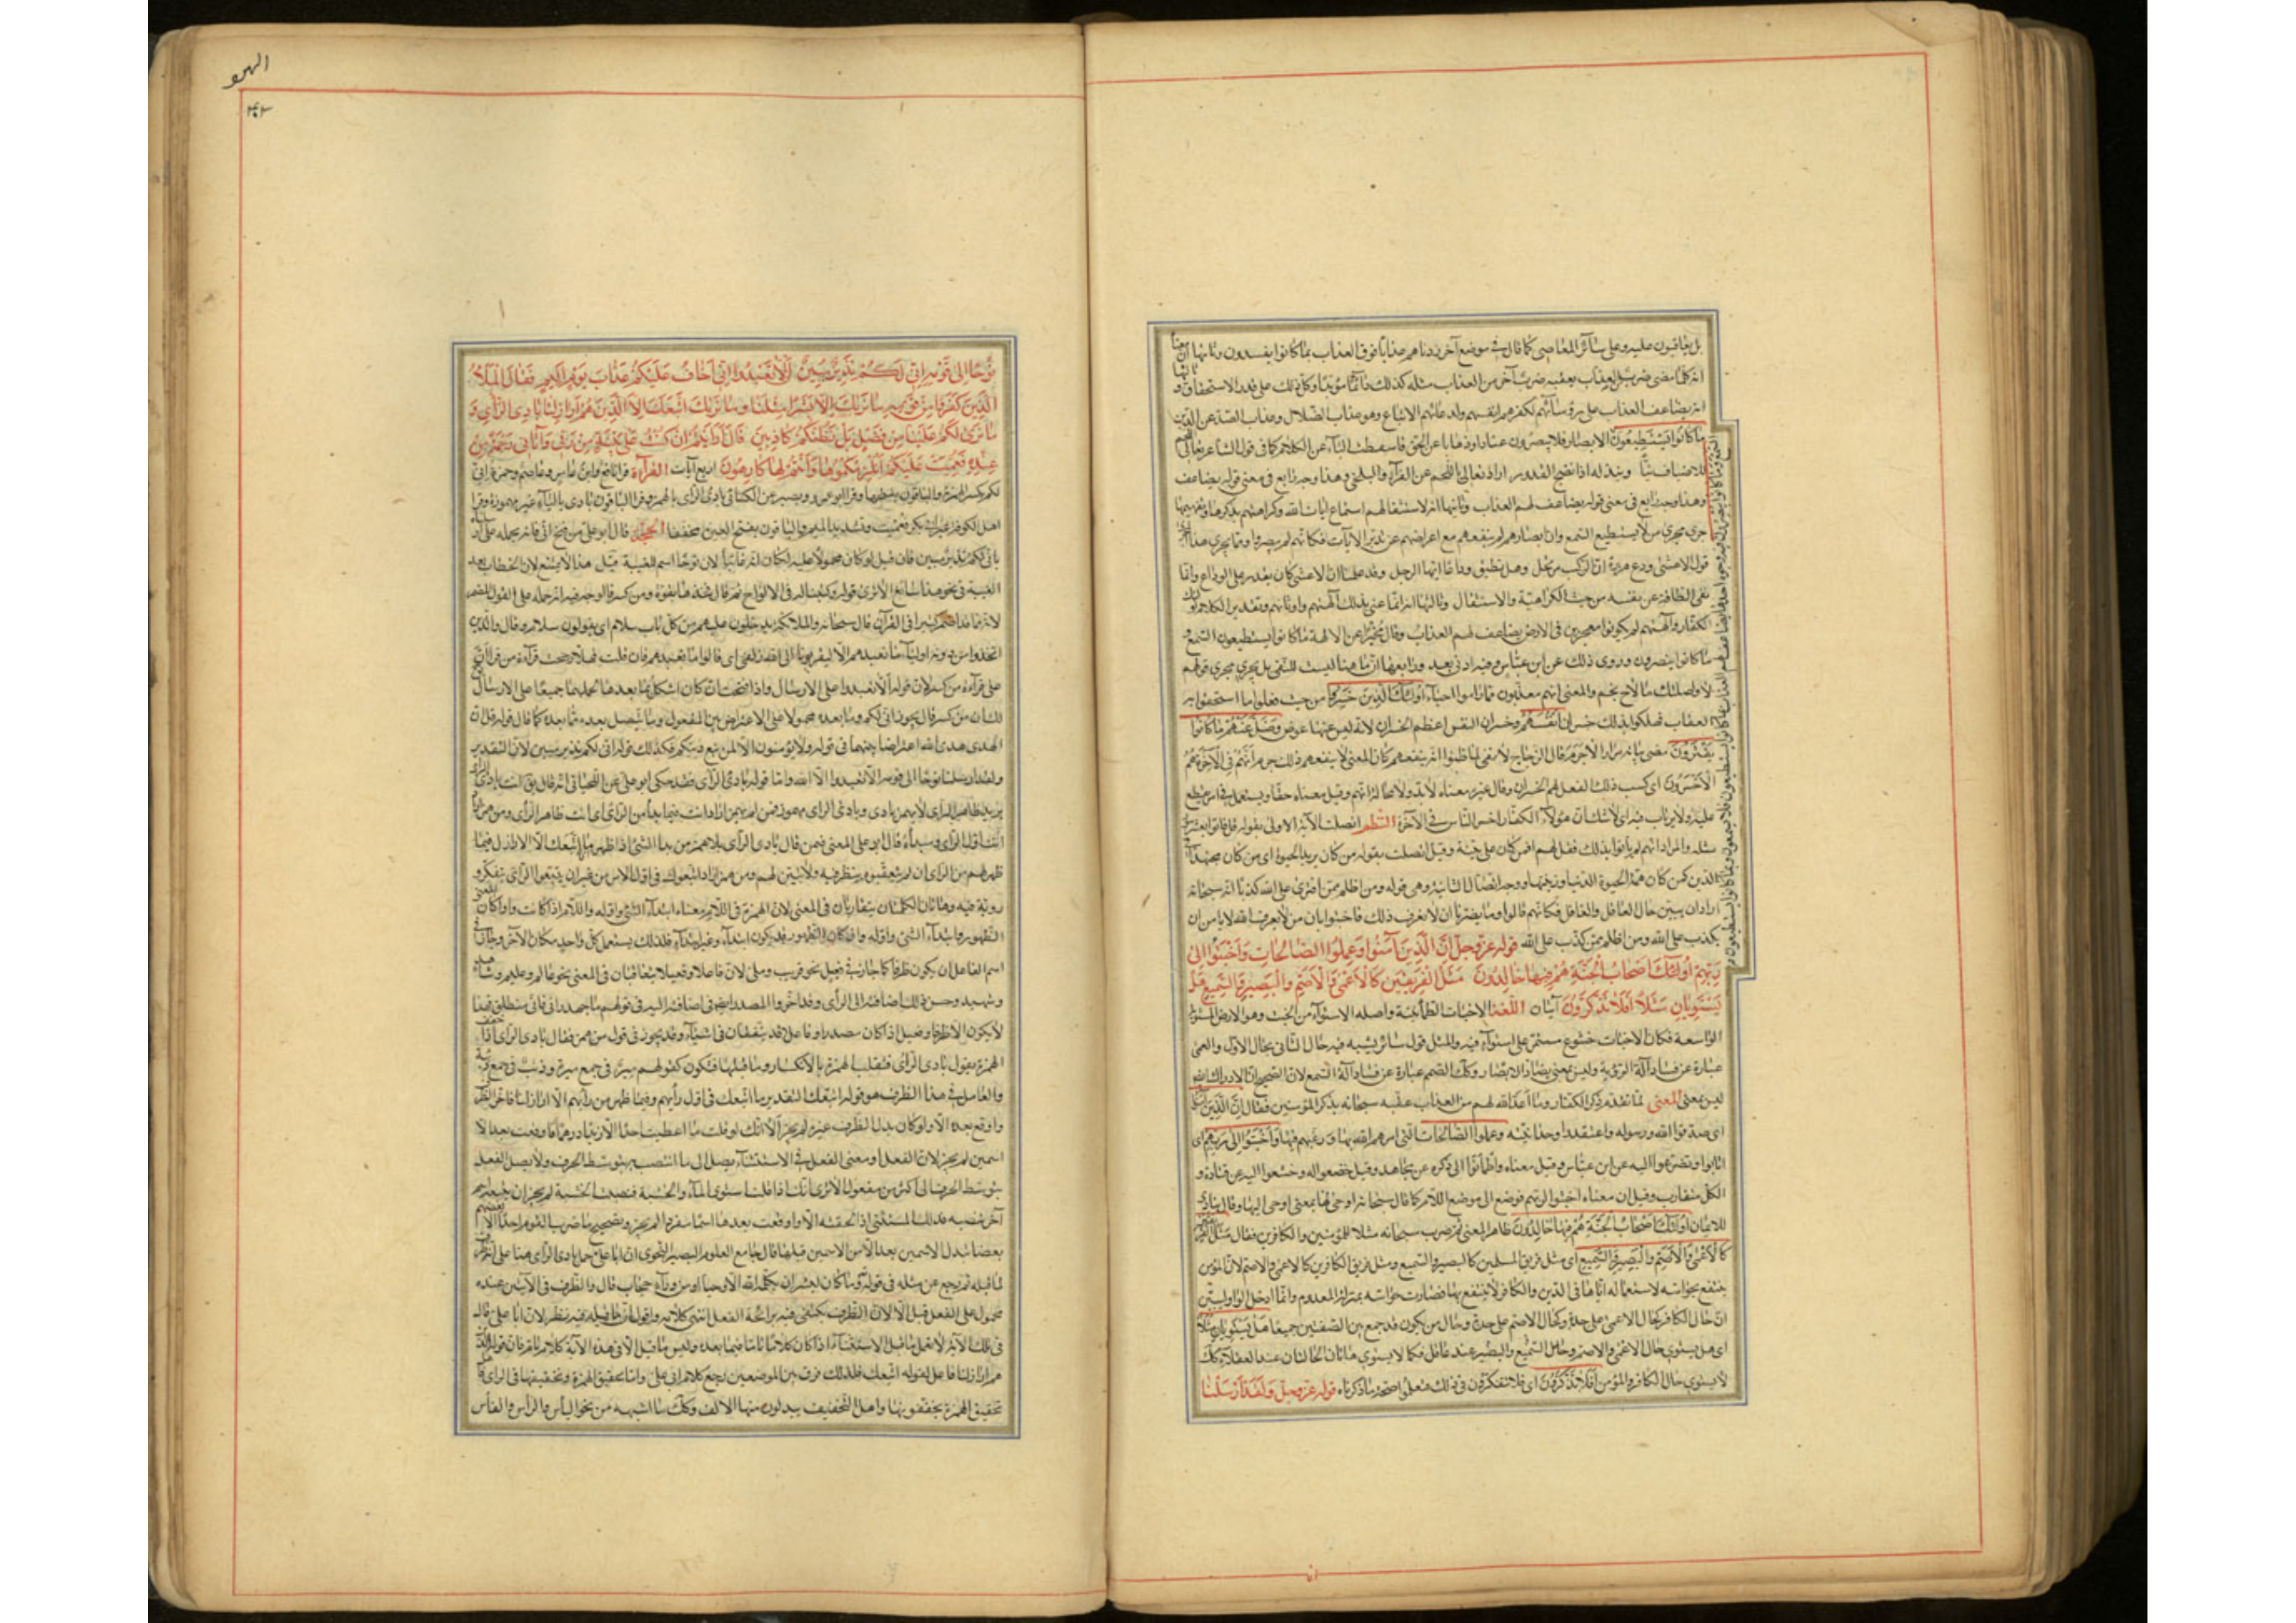 بل يعاقبون عليه وعلى سائر المعاصي كما قال في موضع آخر زدناهم عذابا فوق العذاب بما كانوا يفسدون وثانيها ان معناه
انه كلما مضى ضرب من العذاب يعقبه ضرب آخر من العذاب مثله كذلك دائما مؤبدا وكل ذلك على قدر الاستحقاق وثالثها
انه يضاعف العذاب على رؤسائهم لكفرهم انفسهم ولدعائهم الاتباع وهو عذاب الضلال وعذاب الصد عن الدين
ما كانوا يستطيعون الابصار فلا يبصرون عنادا وذهابا عن الحق فاسقطت الباء عن الكلام كما في قول الشاعر نغالي اللحم
للاضياف نيا ونبذله اذا نضج القدور اراد نغالي باللحم عن الفراء والبلخي وهذا وجه رابع في معنى قوله يضاعف
وهذا وجه رابع في معنى قوله يضاعف لهم العذاب وثانيها انه لاستثقالهم استماع آيات الله وكراهتهم بذكرها وتفهيمها
جرى مجرى من لا يستطيع السمع وان ابصارهم لم ينفعهم مع اعراضهم عن تدبر الآيات فكانهم لم يبصروا ومما يجري هذا المجرى
قول الاعشى ودع هريرة ان الركب مرتحل وهل تطيق وداعا ايها الرجل وقد علمنا ان الاعشى كان يقدر على الوداع وانما
نفى الطاقة عن نفسه من حيث الكراهية والاستثقال وثالثها انه انما عنى بذلك آلهتهم واوثانهم وتقدير الكلام اولئك
الكفار وآلهتهم لم يكونوا معجزين في الارض يضاعف لهم العذاب وقال مخبرا عن الالهة ما كانوا يستطيعون السمع و
ما كانوا يبصرون وروي ذلك عن ابن عباس وفيه ادنى بعد ورابعها ان ما هنا ليست للنفي بل يجري مجرى قولهم
لاواصلنك ما لاح نجم والمعنى انهم معذبون ما داموا احياء اولئك الذين خسروا من حيث فعلوا ما استحقوا به
العقاب فهلكوا بذلك خسران انفسهم وخسران النفس اعظم الخسران لانه ليس عنها عوض وضل عنهم ما كانوا
يفترون مضى بيانه مرارا لا جرم قال الزجاج لا نفي لما ظنوا انه ينفعهم كان المعنى لا ينفعهم ذلك جرم انهم في الآخرة هم
الاخسرون اى كسب ذلك الفعل لهم الخسران وقال غيره معناه لا بد ولا محالة انهم وقيل معناه حقا ويستعمل في امر يقطع
عليه ولا يرتاب فيه اى لا شك ان هؤلاء الكفار اخسر الناس في الآخرة النظم اتصلت الآية الاولى بقوله قل فاتوا بعشر سور
مثله والمراد انهم لم ياتوا بذلك فقل لهم افمن كان على بينة وقيل اتصلت بقوله من كان يريد الحيوة اى من كان مجتهدا في
الدين كمن كان همه الحيوة الدنيا وزينتها ووجه اتصال الثانية وهي قوله ومن اظلم ممن افترى على الله كذبا انه سبحانه
اراد ان يبين حال العاقل والغافل فكانهم قالوا وما يضرنا ان لا نعرف ذلك فاجيبوا بان من لا يعرف الله لا يامن ان
يكذب على الله ومن اظلم ممن كذب على الله قوله عز وجل ان الذين آمنوا وعملوا الصالحات واخبتوا الى
ربهم اولئك اصحاب الجنة هم فيها خالدون مثل الفريقين كالاعمى والاصم والبصير والسميع هل
يستويان مثلا افلا تذكرون آيتان اللغة الاخبات الطمأنينة واصله الاستواء من الخبت وهو الارض المستوية
الواسعة فكان الاخبات خشوع مستمر على استواء فيه والمثل قول سائر يشبه فيه حال الثاني بحال الاول والعمى
عبارة عن فساد آلة الرؤية وليس بمعنى يضاد الابصار وكك الصمم عبارة عن فساد آلة السمع لان الصحيح ان الادراك ايضا
ليس بمعنى المعنى لما تقدم ذكر الكفار وما اعد الله لهم من العذاب عقبه سبحانه بذكر المؤمنين فقال ان الذين آمنوا
اى صدقوا الله ورسوله واعتقدوا وحدانيته وعملوا الصالحات التي امرهم الله بها ورغبهم فيها واخبتوا الى ربهم اى
انابوا وتضرعوا اليه عن ابن عباس وقيل معناه واطمأنوا الى ذكره عن مجاهد وقيل خضعوا له وخشعوا اليه عن قتادة و
الكل متقارب وقيل ان معناه اخبتوا لربهم فوضع الى موضع اللام كما قال سبحانه اوحى لها بمعنى اوحى اليها وقال ينادي
للايمان اولئك اصحاب الجنة هم فيها خالدون ظاهر المعنى ثم ضرب سبحانه مثلا للمؤمنين والكافرين فقال مثل الفريقين
كالاعمى والاصم والبصير والسميع اى مثل فريق المسلمين كالبصير والسميع ومثل فريق الكافرين كالاعمى والاصم لان المؤمن
ينتفع بحواسه لاستعماله اياها في الدين والكافر لا ينتفع بها فصارت حواسه بمنزلة المعدوم وانما ادخل الواو ليبين
ان حال الكافر كحال الاعمى على حدة وكحال الاصم على حدة وحال من يكون قد جمع بين الصفتين جميعا هل يستويان مثلا
اى هل يستوي حال الاعمى والاصم وحال السميع والبصير عند عاقل فكما لا يستوي هاتان الحالتان عند العقلاء كك
لا يستوي حال الكافر والمؤمن افلا تذكرون اى افلا تتفكرون في ذلك فتعلموا صحة ما ذكرناه قوله عز وجل ولقد ارسلنا
الهود
نوحا الى قومه اني لكم نذير مبين ان لا تعبدوا الا الله اني اخاف عليكم عذاب يوم اليم فقال الملأ
الذين كفروا من قومه ما نريك الا بشرا مثلنا وما نريك اتبعك الا الذين هم اراذلنا بادي الرأي و
ما نرى لكم علينا من فضل بل نظنكم كاذبين قال يا قوم ارأيتم ان كنت على بينة من ربي وآتاني رحمة من
عنده فعميت عليكم انلزمكموها وانتم لها كارهون اربع آيات القراءة قرأ نافع وابن عامر وعاصم وحمزة اني
لكم بكسر الهمزة والباقون بفتحها وقرأ ابو عمرو ونصير عن الكسائي بادئ الرأي بالهمزة وقرأ الباقون بادي بالياء غير مهموز وقرأ
اهل الكوفة غير ابي بكر فعميت وتشديد الميم والباقون بفتح العين مخففا الحجة قال ابو علي من فتح اني فانه يحمله على ارسلناه
باني لكم نذير مبين فان قيل لو كان محمولا عليه لكان انه لان نوحا اسم للغيبة قيل هذا لا يمتنع لان الخطاب بعد
الغيبة في نحو هذا سائغ الا ترى قوله وكتبنا له في الالواح ثم قال فخذها بقوة ومن كسر فالوجه فيه انه حمله على القول المضمر
لانه مما قد اضمر كثيرا في القرآن قال سبحانه والملائكة يدخلون عليهم من كل باب سلام اى يقولون سلام وقال والذين
اتخذوا من دونه اولياء ما نعبدهم الا ليقربونا الى الله زلفى اى قالوا ما نعبدهم فان قلت فهلا رجحت قراءة من قرأ اني
على قراءة من كسر لان قوله ان لا تعبدوا على الارسال واذا فتحت ان كان اشكل بما بعدها لحملها جميعا على الارسال
قلت ان من كسر قال يجوز اني لكم وما بعده محمولا على الاعتراض بين المفعول وما يتصل بعده مما بعده كما قال قوله قل ان
الهدى هدى الله اعتراضا بينهما في قوله ولا تؤمنوا الا لمن تبع دينكم فكذلك قوله اني لكم نذير مبين لان التقدير
ولقد ارسلنا نوحا الى قومه الا تعبدوا الا الله واما قوله بادي الرأي فقد حكى ابو علي عن اللحياني انه قال يق انت بادي الرأي
يريد ظاهر الرأي لا يهمز بادي وبادئ الرأي مهموز فمن لم يهمز اراد انت فيما بدا من الرأي اى انت ظاهر الرأي ومن همز اراد
انت اول الرأي ومبدأه قال ابو علي المعنى فيمن قال بادي الرأي بلا همز من بدا الشئ اذا ظهر ما اتبعك الا الاراذل فيما
ظهر لهم من الرأي ان لم يتعقبوه بنظر فيه ولا تبين لهم ومن همز اراد اتبعوك في اول الامر من غير ان يتبعوا الرأي بفكر و
روية فيه وهاتان الكلمتان يتقاربان في المعنى لان الهمزة في اللام معناه ابتداء الشئ واوله واللام اذا كانت واوا كان المعنى
الظهور وابتداء الشئ واوله وان كان الظهور قد يكون ابتداء وغير ابتداء فلذلك يستعمل كل واحد مكان الآخر وجاز في
اسم الفاعل ان يكون ظرفا كما جاز في فعيل نحو قريب وملي لان فاعلا وفعيلا يتعاقبان في المعنى نحو عالم وعليم وشاهد
وشهيد وحسن ذلك اضافته الى الرأي وقد اجروا المصدر ايضا في اضافته اليه في قولهم ما جهد رأيي فاني منطلق فهذا
لا يكون الا ظرفا وفعيل اذا كان مصدرا وفاعل قد يتفقان في اشياء وقد يجوز في قول من همز فقال بادئ الرأي اذا خفف
الهمزة يقول بادي الرأي فتقلب الهمزة ياء لانكسار ما قبلها فتكون كقولهم مير في جمع مئرة وذيب في جمع ذئبة
والعامل في هذا الظرف هو قوله اتبعك التقدير ما اتبعك في اول رأيهم وفيما ظهر من رأيهم الا اراذلنا فاخر الظرف
واوقع بعد الا ولو كان بدل الظرف غيره لم يجز الا انك لو قلت ما اعطيت احدا الا زيدا درهما فاوقعت بعد الا
اسمين لم يجز لان الفعل او معنى الفعل في الاستثناء يصل الى ما انتصب به بتوسط الحرف ولا يصل الفعل
بتوسط الحرف الى اكثر من مفعول الا ترى انك اذا قلت استوى الماء والخشبة فنصبت الخشبة لم يجز ان يتبعه اسما
آخر تنصبه فكذلك المستثنى اذا لحقته الا واوقعت بعدها اسما مفردا لم يجز وتصحيح ما ضرب القوم احدا الا بعضهم
بعضا تبدل الاسمين بعد الا من الاسمين قبلها قال جامع العلوم البصير النحوي ان ابا علي حمل بادي الرأي هنا على انه ظرف
لما قبله ثم رجع عن مثله في قوله وما كان لبشر ان يكلمه الله الا وحيا او من وراء حجاب قال والظرف في الآيتين عنده
محمول على الفعل قبل الا لان الظرف يكتفى فيه برائحة الفعل انتهى كلامه واقول ان ما قبله فيه نظر لان ابا علي قال
في تلك الآية لا يعمل ما قبل الاستثناء اذا كان كلاما تاما فيما بعده وليس ما قبل الا في هذه الآية كلاما تاما فان قوله الذين
هم اراذلنا فاعل لقوله اتبعك فلذلك فرق بين الموضعين رجع كلام ابي علي واما تحقيق الهمزة وتخفيفها في الرأي فاهل
تحقيق الهمزة يحققونها واهل التخفيف يبدلون منها الالف وكك ما اشبهه من نحو الباس والراس والفاس